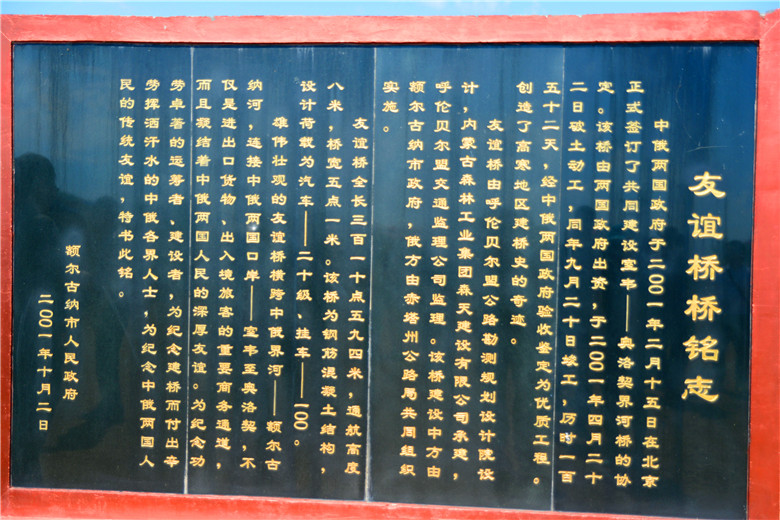 友谊桥桥铭志
中俄两国政府于二〇〇一年二月十五日在北京
正式签订了共同建设室韦——奥洛契界河桥的协
定。该桥由两国政府出资，于二〇〇一年四月二十
二日破土动工，同年九月二十日竣工，历时一百
五十二天，经中俄两国政府验收鉴定为优质工程。
创造了高寒地区建桥史的奇迹。
友谊桥由呼伦贝尔盟公路勘测规划设计院设
计，内蒙古森林工业集团森天建设有限公司承建，
呼伦贝尔盟交通监理公司监理。该桥建设中方由
额尔古纳市政府，俄方由赤塔州公路局共同组织
实施。
友谊桥全长三百一十点五九四米，通航高度
八米，桥宽五点一米。该桥为钢筋混凝土结构，
设计荷载为汽车——二十级、挂车——一〇〇。
雄伟壮观的友谊桥横跨中俄界河——额尔古
纳河，连接中俄两国口岸——室韦至奥洛契，不
仅是进出口货物、出入境旅客的重要商务通道，
而且凝结着中俄两国人民的深厚友谊。为纪念功
劳卓著的运筹者、建设者，为纪念建桥而付出辛
劳挥洒汗水的中俄各界人士，为纪念中俄两国人
民的传统友谊，特书此铭。
额尔古纳市人民政府
二〇〇一年十月二日